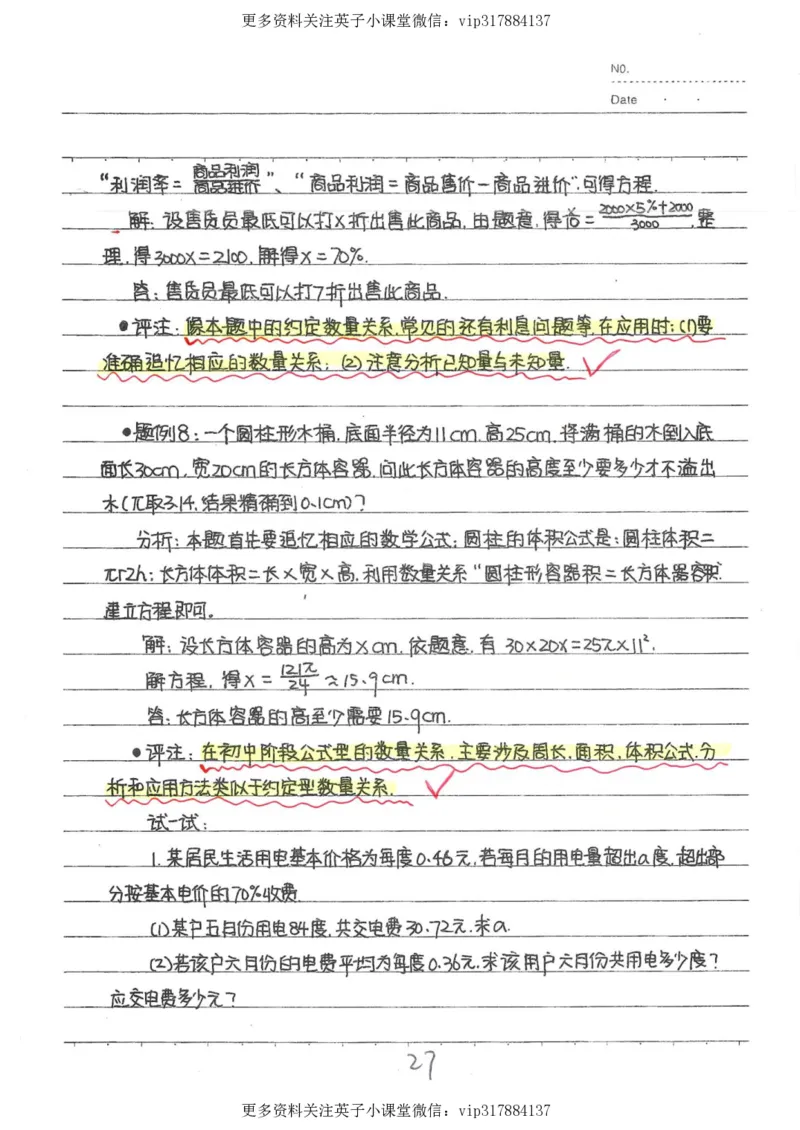 更多资料关注英子小课堂微信：vip317884137
NO.
Date
“利润率=商品利润/商品进价”、“商品利润=商品售价-商品进价”.可得方程.
解：设售货员最低可以打x折出售此商品,由题意,得 =(2000×5%+2000)/3000,整
理,得3000x=2100,解得x=70%.
答：售货员最低可以打7折出售此商品.
●评注：像本题中的约定数量关系,常见的还有利息问题等,在应用时：(1)要
准确追忆相应的数量关系；(2)注意分析已知量与未知量.
●题例8：一个圆柱形水桶,底面半径为11cm,高25cm,将满桶的水倒入底
面长30cm,宽20cm的长方体容器,问此长方体容器的高度至少要多少才不溢出
水(π取3.14,结果精确到0.1cm)？
分析：本题首先要追忆相应的数学公式：圆柱的体积公式是：圆柱体积=
πr2h；长方体体积=长×宽×高,利用数量关系“圆柱形容器积=长方体器容积.
建立方程即可。
解：设长方体容器的高为xcm,依题意,有 30×20x=25π×11².
解方程,得x=121π/24≈15.9cm.
答：长方体容器的高至少需要15.9cm.
●评注：在初中阶段公式型的数量关系,主要涉及周长,面积,体积公式.分
析和应用方法类似于约定型数量关系.
试一试：
1.某居民生活用电基本价格为每度0.46元,若每月的用电量超出a度,超出部
分按基本电价的70%收费.
(1)某户五月份用电84度,共交电费30.72元.求a.
(2)若该户六月份的电费平均为每度0.36元.求该用户六月份共用电多少度？
应交电费多少元？
27
更多资料关注英子小课堂微信：vip317884137